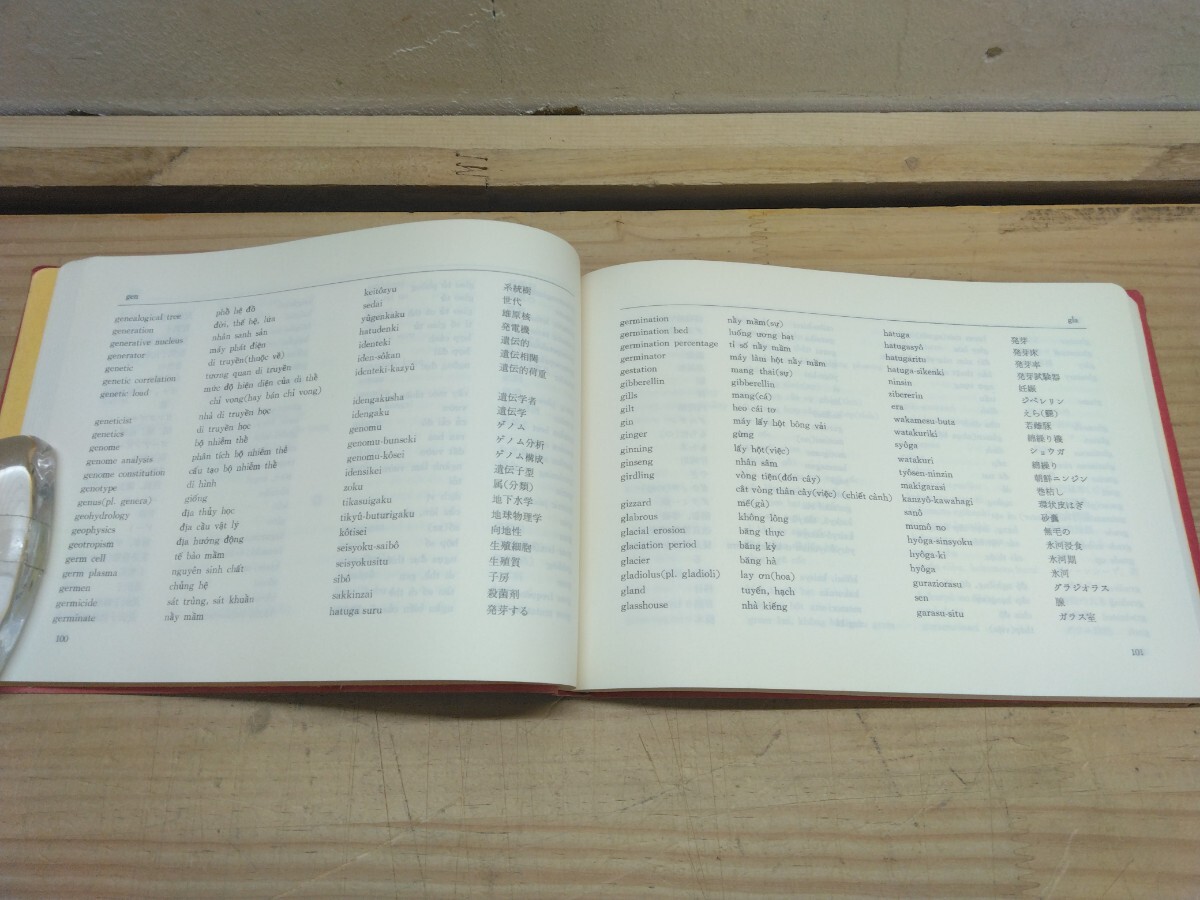 gen
genealogical tree phồ hệ đồ keitôzyu 系統樹
generation đời, thế hệ, lứa sedai 世代
generative nucleus nhân sanh sản yûgenkaku 雄原核
generator máy phát điện hatudenki 発電機
generic di truyền(thuộc về) identeki 遺伝的
genetic correlation tương quan di truyền iden-sôkan 遺伝相関
genetic load mức độ hiện diện của di thể identeki-kazyû 遺伝的荷重
chỉ vong(hay bán chỉ vong)
geneticist nhà di truyền học idengakusha 遺伝学者
genetics di truyền học idengaku 遺伝学
genome bộ nhiễm thể genomu ゲノム
genome analysis phân tích bộ nhiễm thể genomu-bunseki ゲノム分析
genome constitution cấu tạo bộ nhiễm thể genomu-kôsei ゲノム構成
genotype di hình idensikei 遺伝子型
genus(pl. genera) giống zoku 属(分類)
geohydrology địa thủy học tikasuigaku 地下水学
geophysics địa cầu vật lý tikyû-buturigaku 地球物理学
geotropism địa hướng động kôtisei 向地性
germ cell tế bào mầm seisyoku-saibô 生殖細胞
germ plasma nguyên sinh chất seisyokusitu 生殖質
germen chủng hệ sibô 子房
germicide sát trùng, sát khuẩn sakkinzai 殺菌剤
germinate nầy mầm hatuga suru 発芽する
100
gla
germination nầy mầm(sự) hatuga 発芽
germination bed luống ương hạt hatugasyô 発芽床
germination percentage tỉ số nầy mầm hatugaritu 発芽率
germinator máy làm hột nầy mầm hatuga-sikenki 発芽試験器
gestation mang thai(sự) ninsin 妊娠
gibberellin gibberellin zibererin ジベレリン
gills mang(cá) era えら(鰓)
gilt heo cái tơ wakamesu-buta 若雌豚
gin máy lấy hột bông vải watakuriki 綿繰り機
ginger gừng syôga ショウガ
ginning lấy hột(việc) watakuri 綿繰り
ginseng nhân sâm tyôsen-ninzin 朝鮮ニンジン
girdling vòng tiện(đốn cây) makigarasi 巻枯し
cắt vòng thân cây(việc) (chiết cành) kanzyô-kawahagi 環状皮はぎ
gizzard mề(gà) sanô 砂嚢
glabrous không lông mumô no 無毛の
glacial erosion băng thực hyôga-sinsyoku 氷河浸食
glaciation period băng kỳ hyôga-ki 氷河期
glacier băng hà hyôga 氷河
gladiolus(pl. gladioli) lay ơn(hoa) guraziorasu グラジオラス
gland tuyến, hạch sen 腺
glasshouse nhà kiếng garasu-situ ガラス室
101